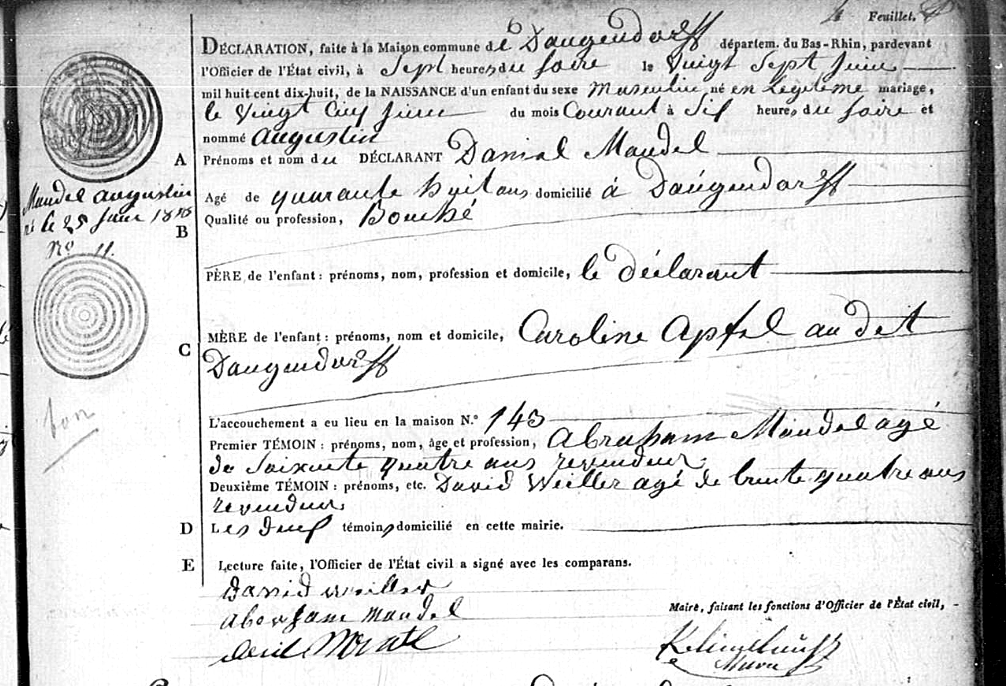 Feuillet.
DÉCLARATION, faite à la Maison commune de Daugendorff départem. du Bas-Rhin, pardevant
l'Officier de l'État civil, à Sept heures du soire le Vingt Sept Juin
mil huit cent dix-huit, de la NAISSANCE d'un enfant du sexe Masculin né en Legiteme mariage,
le Vingt Cinq Juin du mois Courant à Six heures du soire et
nommé Augustin
A Prénoms et nom du DÉCLARANT Daniel Mandel
Mandel Augustin
né le 25 Juin 1818
No. 11.
Agé de quarante huit ans domicilié à Daugendorff
B Qualité ou profession, Bouché
PÈRE de l'enfant : prénoms, nom, profession et domicile, le déclarant
C MÈRE de l'enfant : prénoms, nom et domicile, Caroline Apfel au dit
Daugendorff
bon
L'accouchement a eu lieu en la maison N.° 143
Premier TÉMOIN : prénoms, nom, âge et profession, Abraham Mandel agé
de Soixente quatre ans revendeur
Deuxième TÉMOIN : prénoms, etc. David Weiller agé de trente quatre ans
revendeur
D Les deux témoins domicilié en cette mairie.
E Lecture faite, l'Officier de l'État civil a signé avec les comparans.
David Weiller
Abraham Mandel
Maire, faisant les fonctions d'Officier de l'État civil,